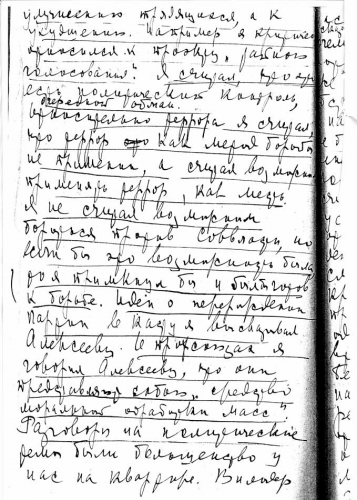 улучшению трудящихся, а к
ухудшению. Например я критически
относился к проэкту „тайного
голосования". Я считал, что это
есть политический контроль,
очередной обман.
относительно террора я считал,
что террор как мера борьбы
не применим, а считал возможным
применять террор, как месть.
Я не считал возможным
бороться против Соввласти, но
если бы это возможность была
то я примкнул бы и был готов
к борьбе. Идеи о перерождении
партии в касту я высказывал
Алексееву. О процессах я
говорил Алексееву, что они
представляют собою „средство
моральной обработки масс".
Разговоры на политические
темы были большинство у
нас на квартире.